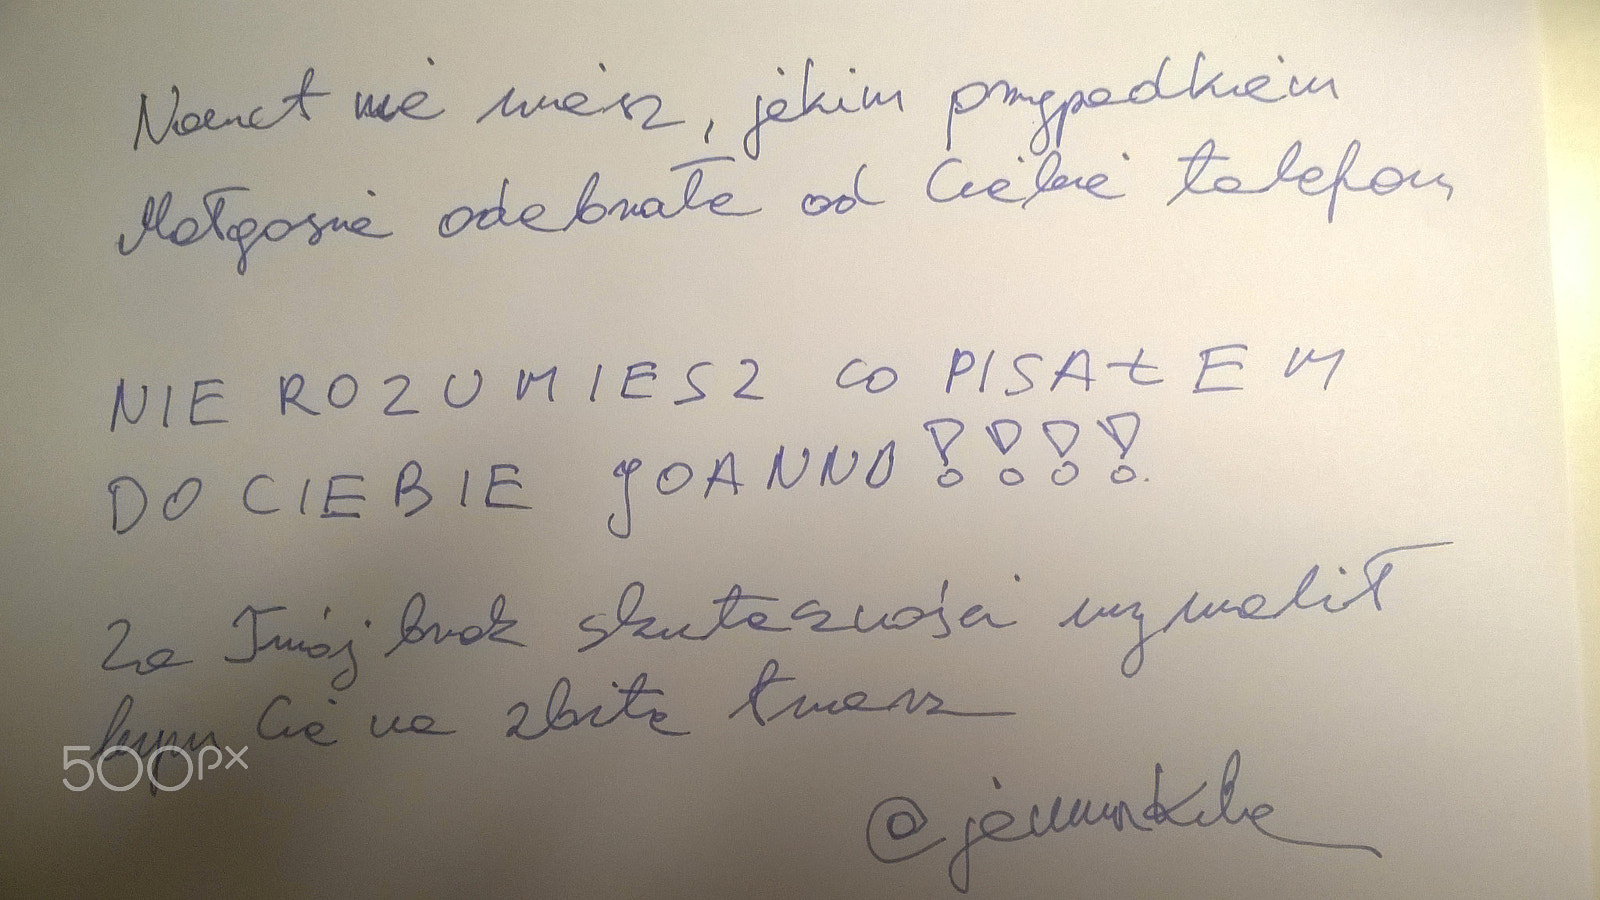 Nawet nie wiesz, jakim przypadkiem
Małgosia odebrała od Ciebie telefon,
NIE ROZUMIESZ CO PISAŁEM
DO CIEBIE JOANNO!!!!
Za Twój brak skuteczności wywalił
bym Cię na zbitą twarz
500px